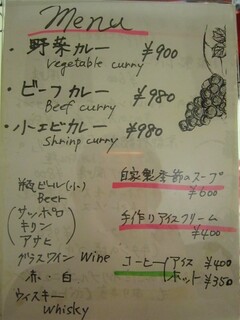 Menu
・野菜カレー ¥900
vegetable curry
・ビーフカレー ¥980
Beef curry
・小エビカレー ¥980
Shrimp curry
自家製季節のスープ
¥600
手作りアイスクリーム
¥400
コーヒー(アイス ¥400
ホット ¥350
瓶ビール(小)
Beer
(サッポロ
キリン
アサヒ)
グラスワイン Wine
赤・白
ウィスキー
Whisky